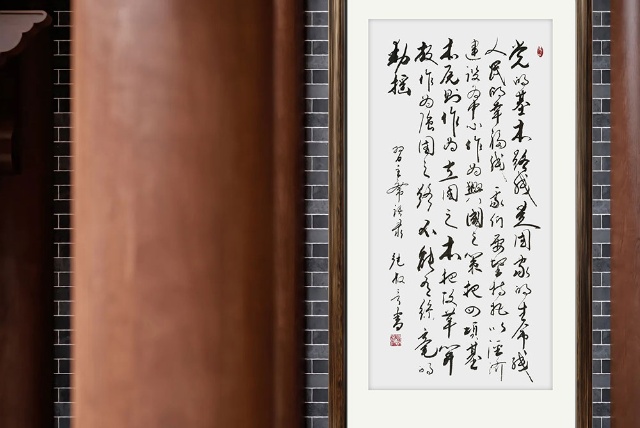 党的基本路线是国家的生命线
人民的幸福线我们要坚持把以经济
建设为中心作为興國之要把四项基
本原则作为立国之本把改革开
放作为强国之路不能有丝毫的
动摇
习主席语录